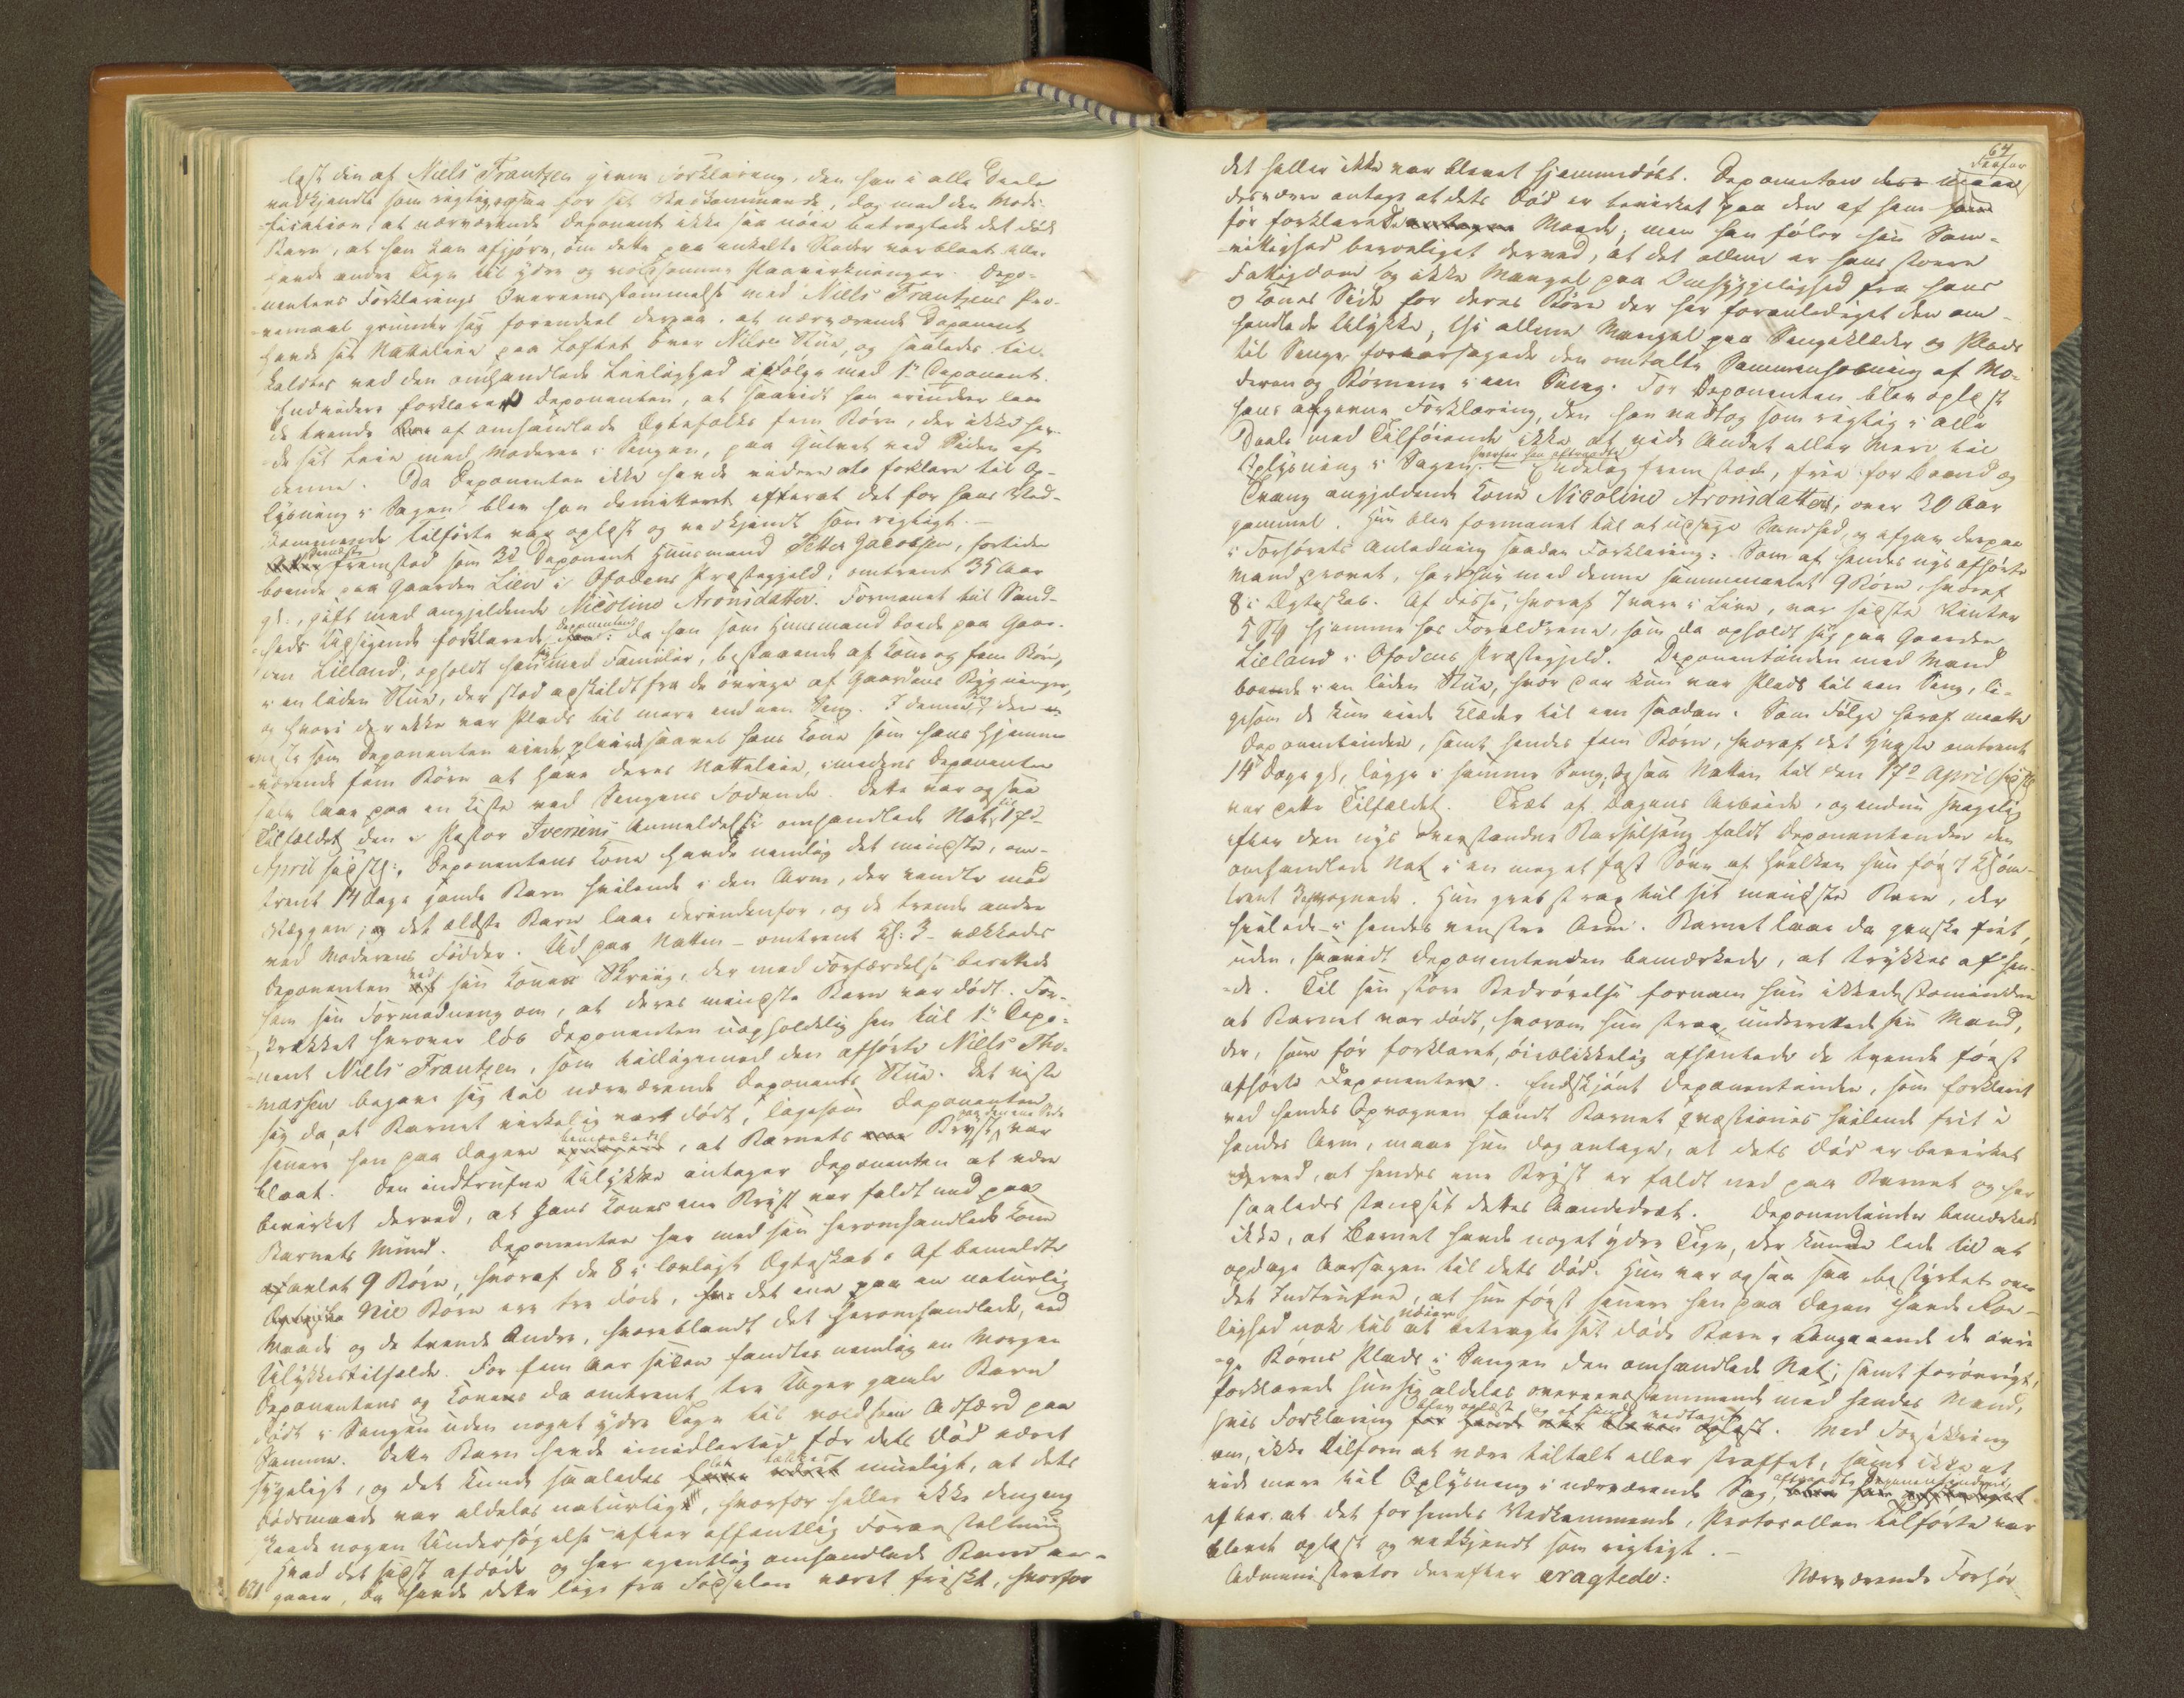 læst den af Niels Frantzen givne Forklaring, den han i alle Deele
vedkjendte som rigtig ogsaa for sit Vedkommende, dog med den Modi-
fication, at nærværende Deponent ikke saa nøie betragtede det døde
Barn, at han kan afgjøre, om dette paa enkelte Steder var blaat eller
havde andre Tegn til ydre og voldsomme Paavirkninger. Depo-
nentens Forklarings Overeensstemmelse med Niels Frantzens Pro-
vemaal grunder sig forendeel derpaa, at nærværende Deponent
havde sit Natteleie paa Loftet over Nilsens Stue, og saaledes til-
kaldtes ved den omhandlede Leilighed ifølge med 1ste Deponent.
Endvidere forklarer Deponenten, at saavidt han erindrer laae
de tvende af omhandlede Ægtefolks fem Børn, der ikke hav-
de sit Leie med Moderen i Sengen, paa Gulvet ved Siden af
denne. Da Deponenten ikke havde videre at forklare til Op-
lysning i Sagen blev han demitteret efterat det for hans Ved-
kommende Tilførte var oplæst og vedkjendt som rigtigt. –
Dernæst fremstod som 3die Deponent Huusmand Petter Jacobsen, fortiden
boende paa Gaarden Lien i Ofodens Præstegjeld, omtrent 35 Aar
gl., gift med angjeldende Nicoline Aronsdatter. Formanet til Sand-
heds Udsigende forklarede Deponenten: da han som Huusmand boede paa Gaar-
den Lieland, opholdt han sig med Familie, bestaaende af Kone og fem Børn,
i en liden Stue, der stod adskildt fra de øvrige af Gaardens Bygninger,
og hvori der ikke var Plads til mere end een Seng. I denne Seng, den e-
neste som Deponenten eiede, pleiede saavel hans Kone som hans hjemme-
værende fem Børn at have deres Natteleie, imedens Deponenten
selv laae paa en Kiste ved Sengens Fodende. Dette var ogsaa
Tilfældet den i Pastor Iversens Anmeldelse omhandlede Nat til 17de
April sidstl. Deponentens Kone havde nemlig det mindste, om-
trent 14 Dage gamle Barn hvilende i den Arm, der vendte mod
Væggen; og det ældste Barn laae derindenfor, og de tvende andre
ved Moderens Fødder. Ud paa Natten – omtrent Kl: 3 – vækkedes
Deponenten ved sin Kones Skriig, der med Forfærdelse berettede
ham sin Formodning om, at deres mindste Barn var dødt. For-
skrækket herover løb Deponenten uopholdelig hen til 1ste Depo-
nent Niels Frantzen, som tilligemed den afhørte Niels Tho-
massen begave sig til nærværende Deponents Stue. Det viste
sig da, at Barnet virkelig var dødt, ligesom Deponenten
senere hen paa Dagen bemærkede, at Barnets Bryst paa den ene Side var
blaat. Den indtrufne Ulykke antager Deponenten at være
bevirket derved, at hans Kones ene Bryst var faldt ned paa
Barnets Mund. Deponenten har med sin heromhandlede Kone
avlet 9 Børn, hvoraf de 8 i lovligt Ægteskab. Af bemeldte
Nie Børn ere tre døde, det ene paa en naturlig
Maade og de tvende Andre, hvoreblandt det heromhandlede, ved
Ulykkestilfælde. For fem Aar siden fandtes nemlig en Morgen
Deponentens og Konens da omtrent tre Uger gamle Barn
dødt i Sengen uden noget ydre Tegn til voldsom Adfærd paa
Samme. Dette Barn havde imidlertid før dets Død været
sygeligt, og det kunde saaledes let tænkes mueligt, at dets
Dødsmaade var aldeles naturlig, hvorfor heller ikke dengang
skeede nogen Undersøgelse efter offentlig Foranstaltning.
Hvad det sidst afdøde og her egentlig omhandlede Barn an-
gaaer, da havde dette lige fra Fødselen været friskt, hvorfor
64
det heller ikke var blevet hjemmedøbt. Deponenten derfor
desværre antage at dets Død er bevirket paa den af ham
før forklarede Maade; men han føler sin Sam-
vittighed beroeliget derved, at det allene er hans store
Fattigdom og ikke Mangel paa Omhyggelighed fra hans
og Kones Side for deres Børn der har foranlediget den om-
handlede Ulykke, thi allene Mangel paa Sengeklæder og Plads
til Senge foraarsagede den omtalte Sammenhobning af Mo-
deren og Børnene i een Seng. For Deponenten blev oplæst
hans afgivne Forklaring, den han vedtog som rigtig i alle
Deele med Tilføiende ikke at vide Andet eller Mere til
Oplysning i Sagen, hvorfor han aftraadte. – Endelig fremstod, frie for Baand og
Tvang angjældende Kone Nicoline Aronsdatter, over 30 Aar
gammel. Hun blev formanet til at udsige Sandhed, og afgav derpaa
i Forhørets Anledning saadan Forklaring: Som af hendes nys afhørte
Mand provet, har hun med denne sammenavlet 9 Børn, hvoraf
8 i Ægteskab. Af disse, hvoraf 7 vare i Live, var sidste Vinter
5 hjemme hos Forældrene, som da opholdt sig paa Gaarden
Lieland i Ofodens Præstegjeld. Deponentinden med Mand
boede i en liden Stue, hvor der kun var Plads til een Seng, li-
gesom de kun eiede Klæder til een saadan. Som Følge heraf maatte
Deponentinden, samt hendes fem Børn, hvoraf det yngste omtrent
14 Dage gl., ligge i samme Seng. Ogsaa Natten til den 17de April sidstl.
var dette Tilfældet. Træt af Dagens Arbeide, og endnu svagelig
efter den nys overstandne Barselseng faldt Deponentinden den
omhandlede Nat i en meget fast Søvn af hvilken hun før Kl. om-
trent 3 opvaagnede. Hun greb strax til sit mindste Barn, der
hvilede i hendes venstre Arm. Barnet laae da ganske frit,
uden, saavidt Deponentinden bemærkede, at trykkes af hen-
de. Til sin store Bedrøvelse fornam hun ikkedestomindre
at Barnet var dødt, hvorom hun strax underrettede sin Mand,
der, som før forklaret, øieblikkelig afhentede de tvende først
afhørte Deponenter. Endskjønt Deponentinden, som forklaret
ved hendes Opvaagnen fandt Barnet qvæstionis hvilende frit i
hendes Arm, maae hun dog antage, at dets Død er bevirket
derved, at hendes ene Bryst er faldt ned paa Barnet og har
saaledes standset dettes Aandedræt. Deponentinden bemærkede
ikke, at Barnet havde noget ydre Tegn, der kunde lede til at
opdage Aarsagen til dets Død. Hun var ogsaa saa bestyrtet over
det Indtrufne, at hun først senere hen paa Dagen havde Roe-
lighed nok til at nøiere betragte sit døde Barn. Angaaende de øvri-
ge Børns Plads i Sengen den omhandlede Nat, samt forøvrigt,
forklarede hun sig aldeles overeensstemmende med hendes Mand,
hvis Forklaring blev oplæst og af hende vedtaget. Med Forsikkring
om, ikke tilforn at være tiltalt eller straffet, samt ikke at
vide mere til Oplysning i nærværende Sag, aftraadte Deponentinden,
efter at det for hendes Vedkommende, Protocollen tilførte var
blevet oplæst og vedkjendt som rigtigt. –
Administrator derefter eragtede: Nærværende Forhør